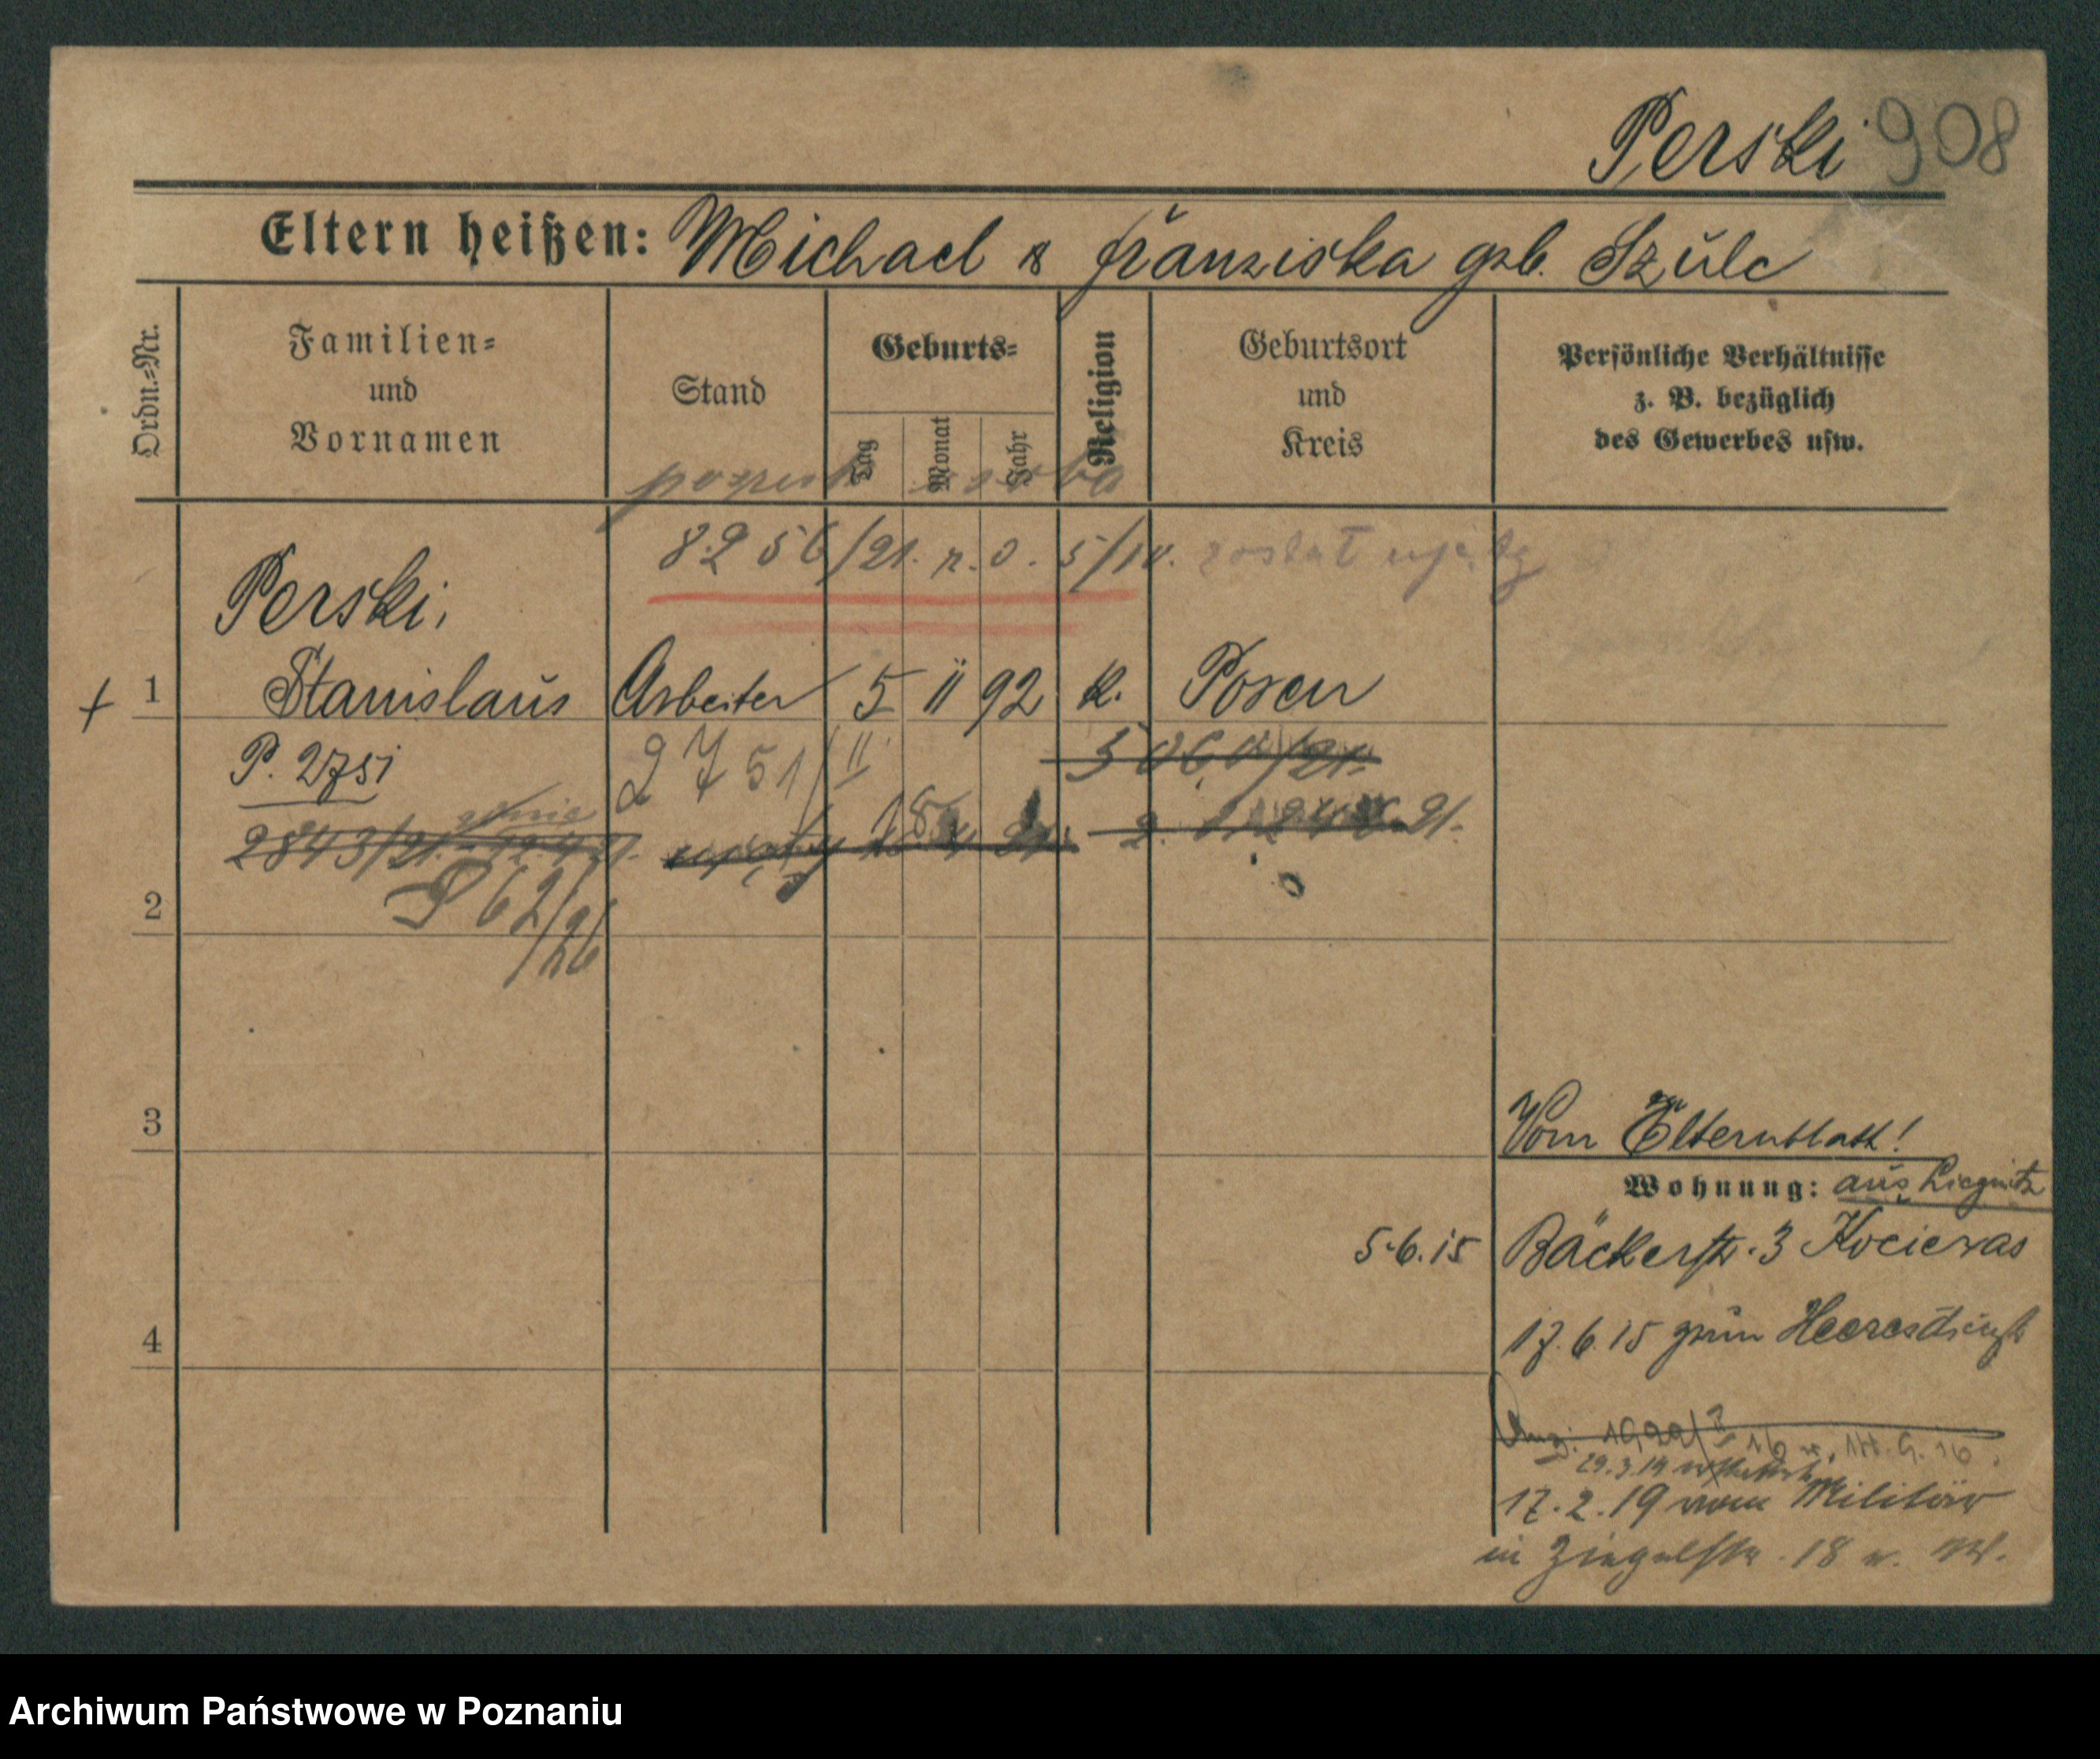 Perski 908
Eltern heißen: Michael & Franziska geb. Szulc
Ordn.-Nr.
Familien-
und
Vornamen
Stand
Geburts-
Tag
Monat
Jahr
Religion
Geburtsort
und
Kreis
Persönliche Verhältnisse
z. B. bezüglich
des Gewerbes usw.
8256/21. 5/IV. został ujęty
Perski,
+ 1 Stanislaus Arbeiter 5 11 92 k. Posen
P. 2751 2751/II
5060/21.
2843/21. ujęty 21.
2
P 62/26
3
Vom Elternblatt!
Wohnung: aus Liegnitz
5.6.15 Bäckerstr. 3 Kociewas
4
17.6.15 zum Heeresdienst
29.3.19
17.2.19 vom Militär
in Ziegelstr. 18 W.
Archiwum Państwowe w Poznaniu